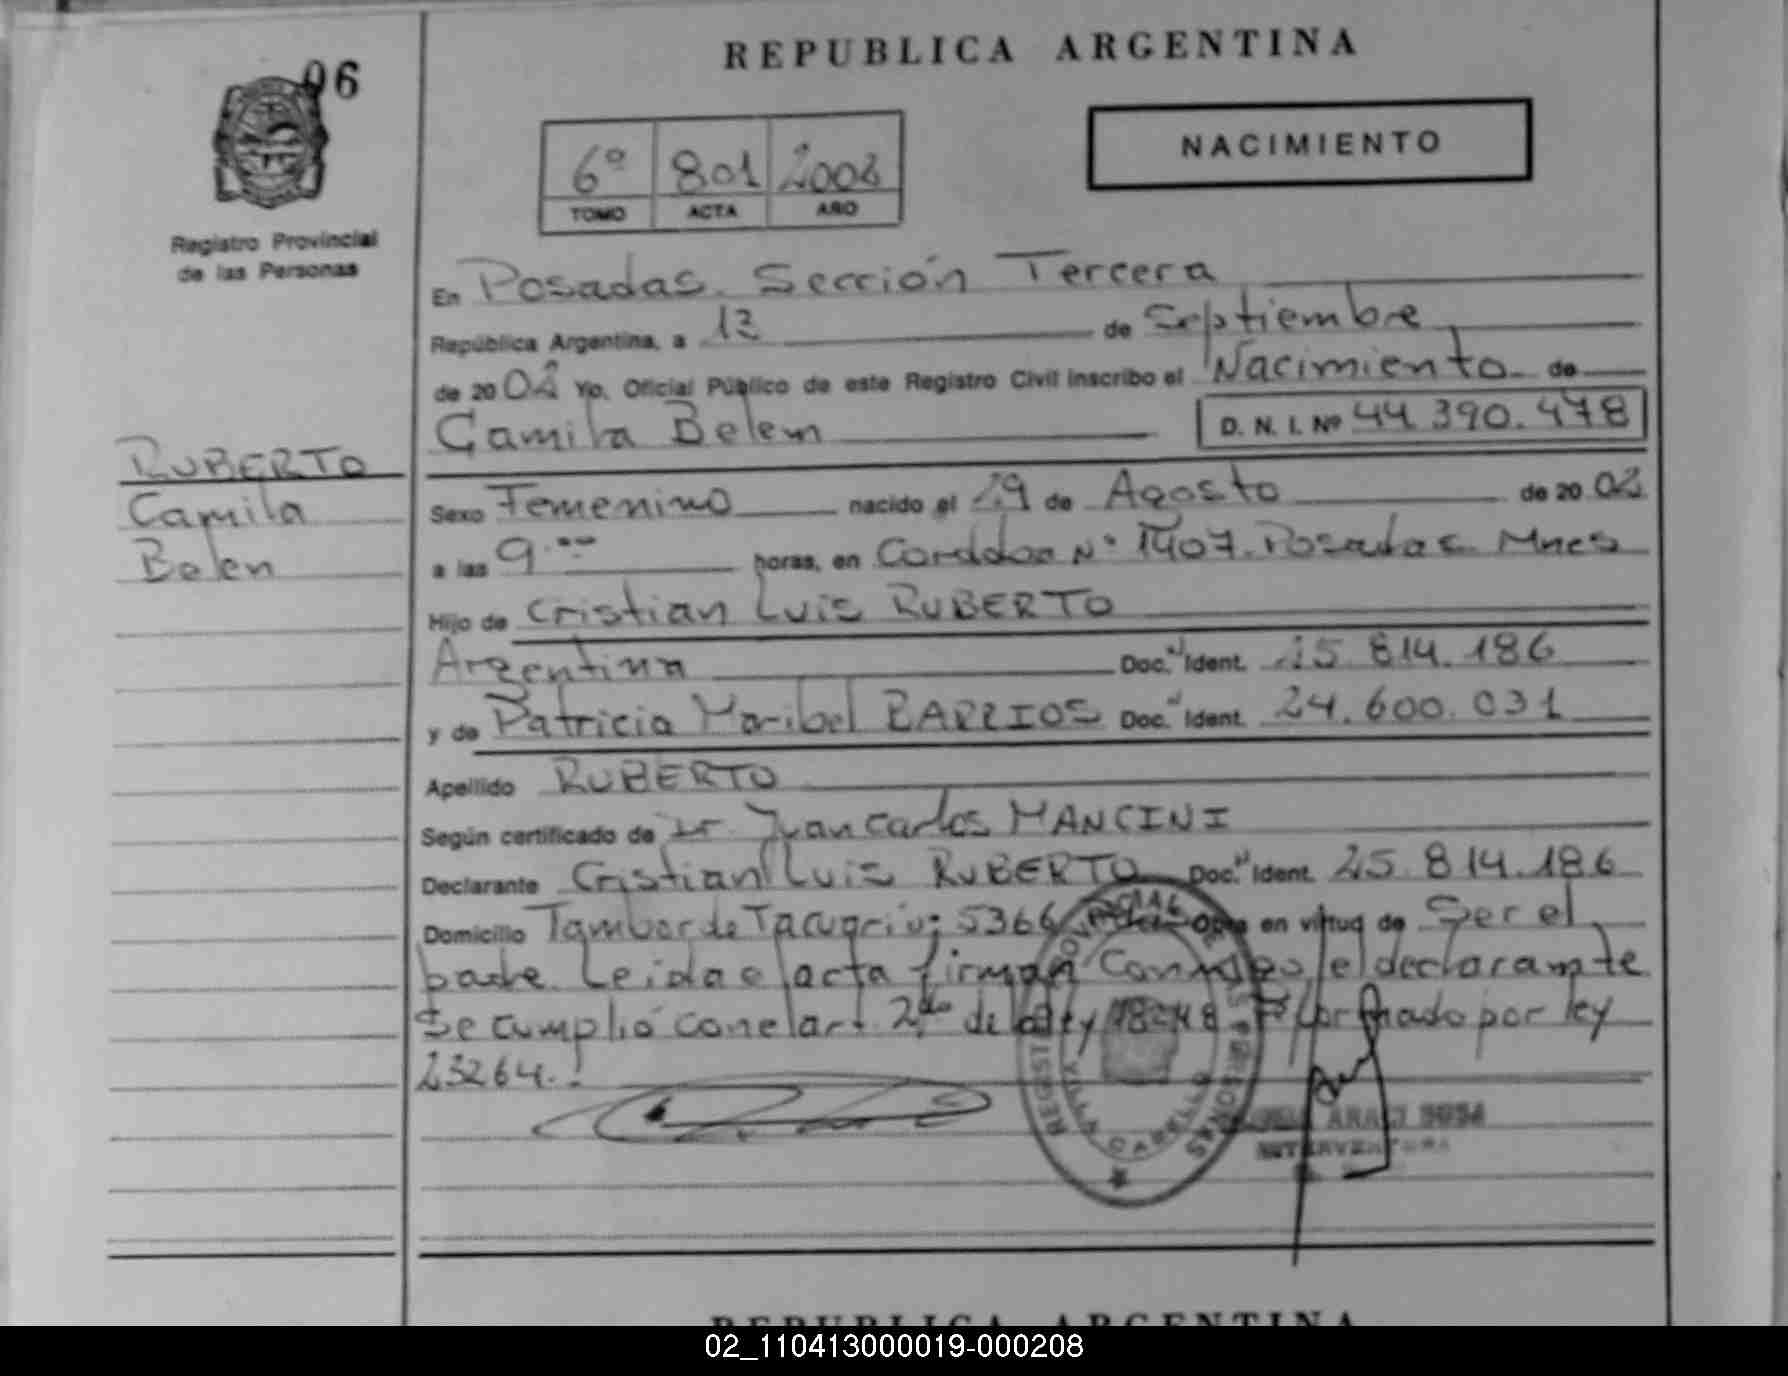 06
REPUBLICA ARGENTINA
NACIMIENTO
6º 801 2002
TOMO ACTA AÑO
Registro Provincial
de las Personas
En Posadas Sección Tercera
República Argentina, a 12 de Septiembre
de 2002 Yo, Oficial Público de este Registro Civil inscribo el Nacimiento de
Camila Belem D. N. I. Nº 44.390.478
RUBERTO
Camila
Belen
Sexo Femenino nacido el 29 de Agosto de 2002
a las 9.00 horas, en Cordoba Nº 1407. Posadas Mnes
Hijo de Cristian Luis RUBERTO
Argentina Doc. Ident. 25.814.186
y de Patricia Maribel BARRIOS Doc. Ident. 24.600.031
Apellido RUBERTO
Según certificado de Dr. Juan Carlos MANCINI
Declarante Cristian Luis RUBERTO Doc. Ident. 25.814.186
Domicilio Tambor de Tacuari Nº 5366 Obra en virtud de Ser el
padre. Leida el acta firman Conmigo el declarante
Se cumplió con el art. 2do de la ley 18248 Reformado por ley
23264.
REGISTRO PROVINCIAL DE LAS PERSONAS
VILLA CABELLO
ARACI SOSA
INTERVENTORA
REPUBLICA ARGENTINA
02_110413000019-000208